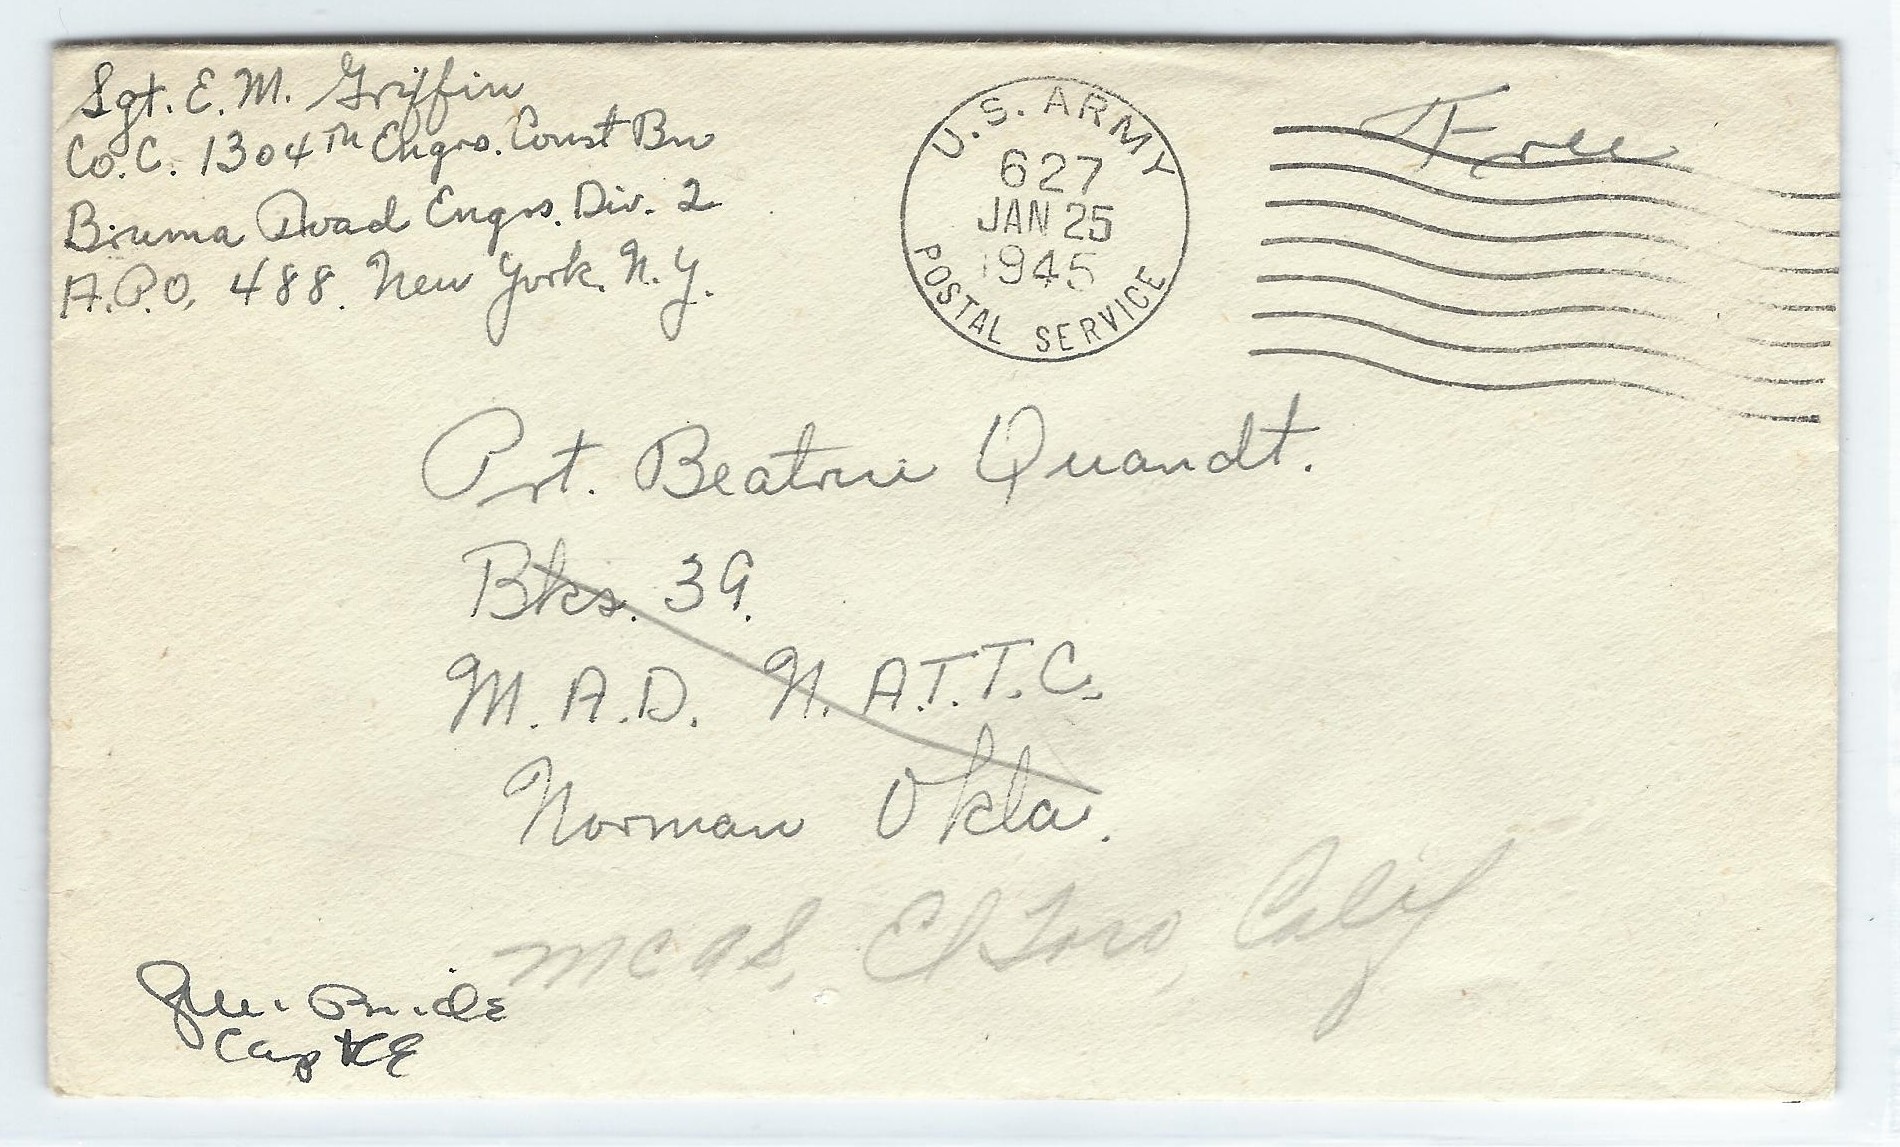 Sgt. E. M. Griffin
Co. C. 1304th Engrs. Const Bn
Biruma Road Engrs. Div. 2
A.P.O. 488. New York. N.Y.
U.S. ARMY
627
JAN 25
1945
POSTAL SERVICE
Free
Pvt. Beatrice Quandt.
Bks. 39.
M.A.D. N.A.T.T.C.
Norman Okla.
MCAS, El Toro, Calif
Pride
Capt CE